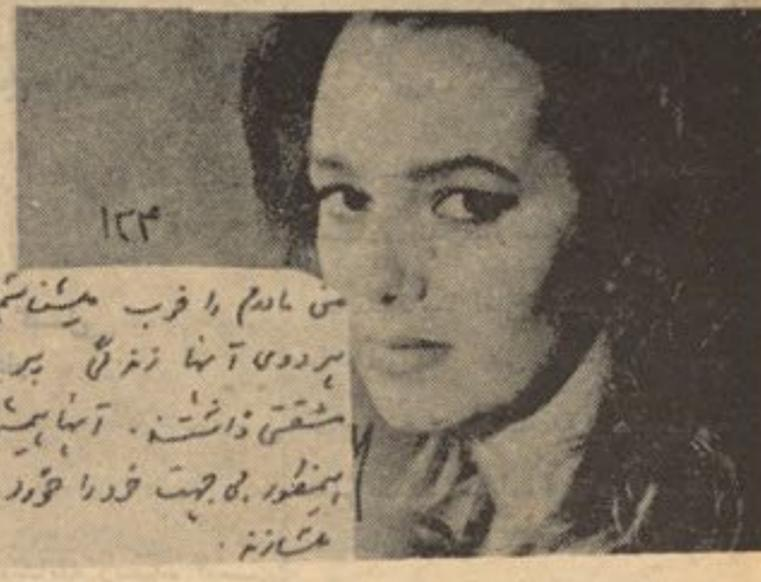 ۱۲۴
من مادرم را خوب میشناختم
هر دوی آنها زندگی پر
مشقتی داشتند. آنها
همینطور بی جهت خود را خورد
میسازند.